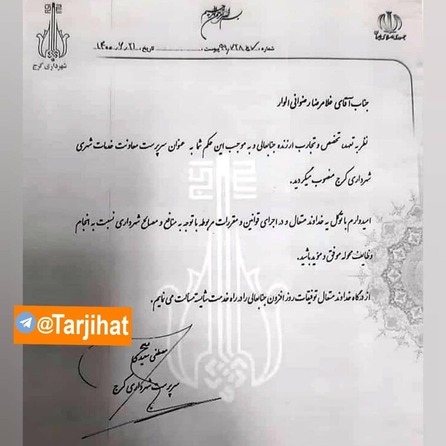 بسم الله الرحمن الرحیم
شهرداری کرج
شماره:
تاریخ:
جناب آقای غلامرضا رضوانی الوار
نظر به تعهد، تخصص و تجارب ارزنده جنابعالی و به موجب این حکم شما به عنوان سرپرست معاونت خدمات شهری
شهرداری کرج منصوب میگردید.
امیدوارم با توکل به خداوند متعال و در اجرای قوانین و مقررات مربوطه با توجه به منافع و مصالح شهرداری نسبت به انجام
وظایف محوله موفق و موید باشید.
از درگاه خداوند متعال توفیقات روز افزون جنابعالی را در راه خدمت شایسته مسالت می نمایم.
@Tarjihat
مصطفی سعیدی
سرپرست شهرداری کرج